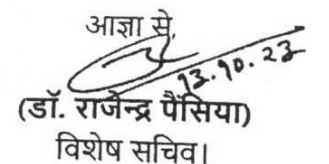 आज्ञा से,
13.10.23
(डॉ. राजेन्द्र पैंसिया)
विशेष सचिव।